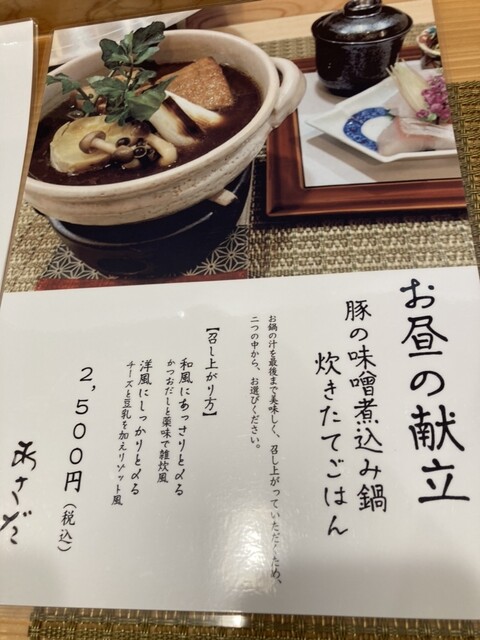 お昼の献立
豚の味噌煮込み鍋
炊きたてごはん
お鍋の汁を最後まで美味しく、召し上がっていただくため、
二つの中から、お選びください。
【召し上がり方】
和風にあっさりと〆る
かつおだしと薬味で雑炊風
洋風にしっかりと〆る
チーズと豆乳を加えリゾット風
2,500円（税込）